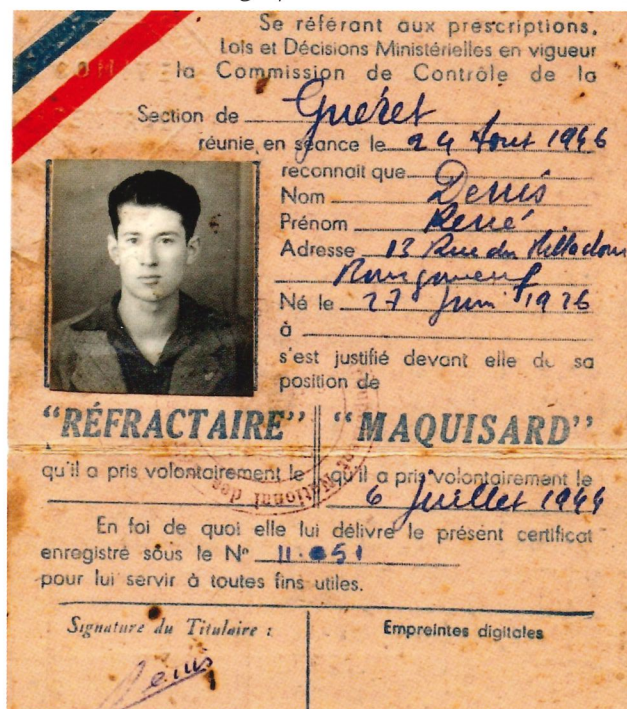 Se référant aux prescriptions,
Lois et Décisions Ministérielles en vigueur
la Commission de Contrôle de la
Section de Guéret
réunie en séance le 24 Aout 1946
reconnait que
Nom Denis
Prénom René
Adresse 13 Rue du
Né le 27 Juin 1926
à
s'est justifié devant elle de sa
position de
"RÉFRACTAIRE" "MAQUISARD"
qu'il a pris volontairement le qu'il a pris volontairement le
6 Juillet 1944
En foi de quoi elle lui délivre le présent certificat
enregistré sous le Nº 11.051
pour lui servir à toutes fins utiles.
Signature du Titulaire : Empreintes digitales
Denis